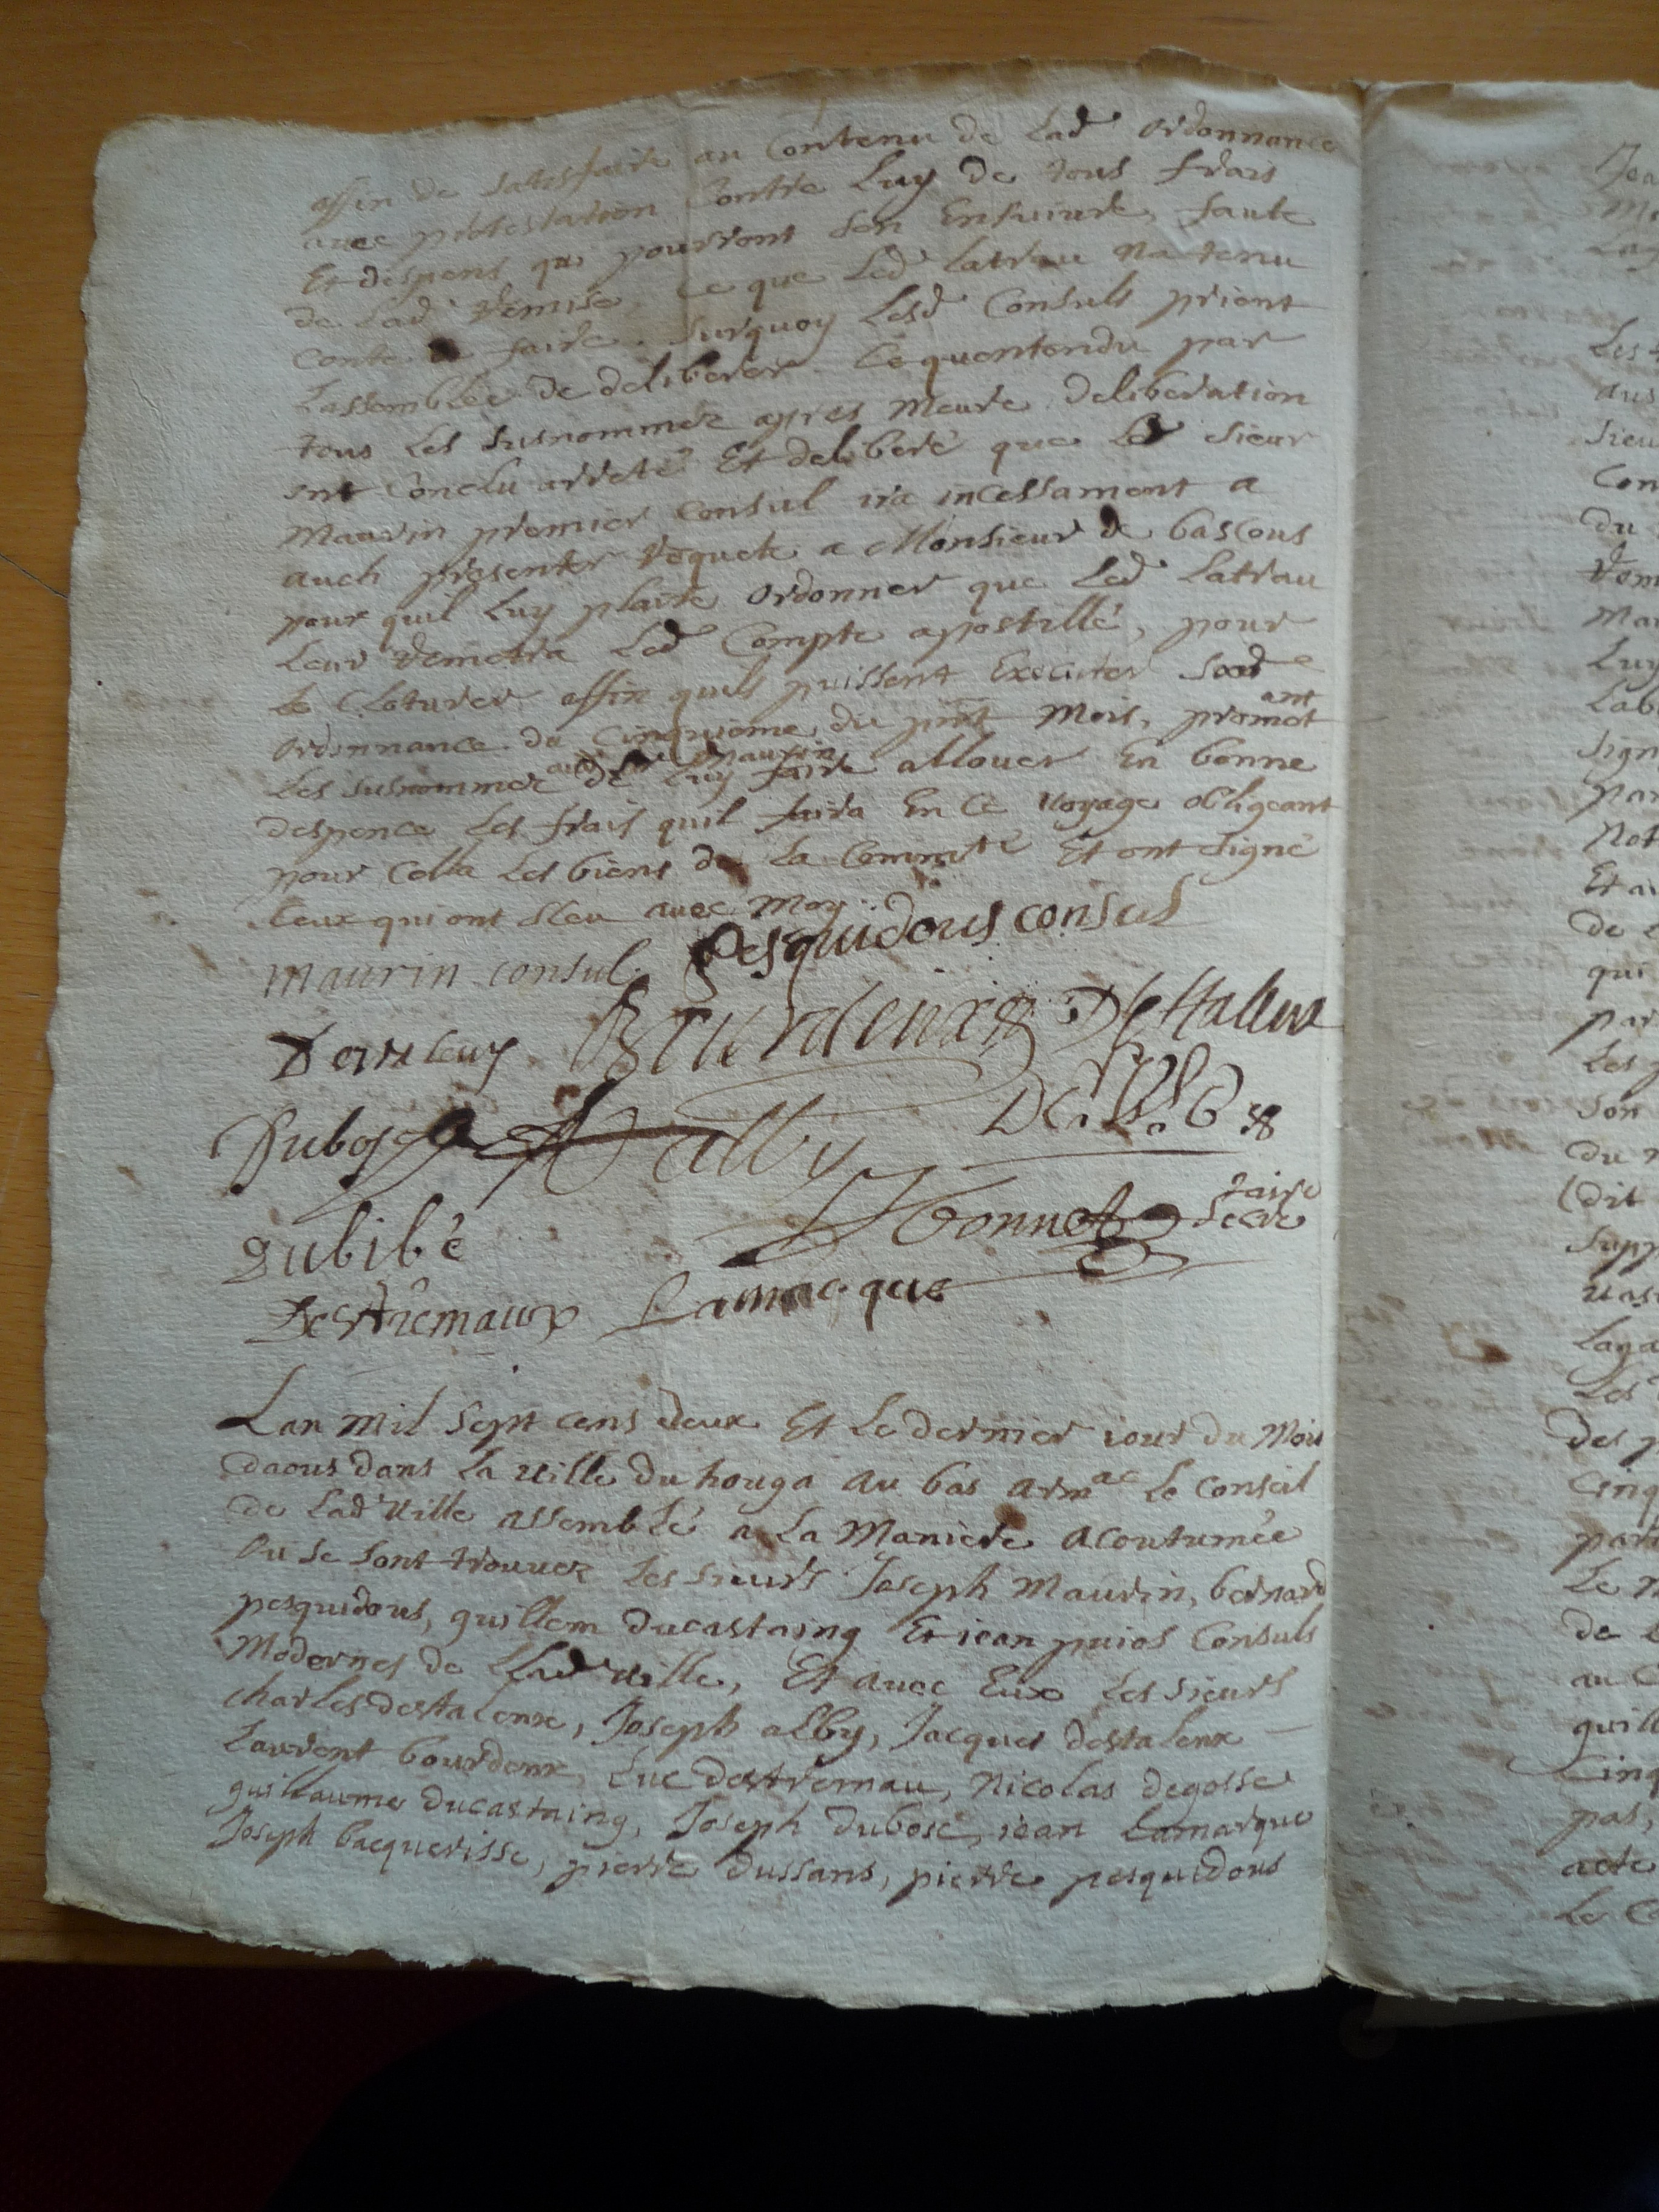 affin de satisfaire au Contenu de Lad ordonnance
avec protestation Contre Luy de tous frais
Et despens qui pourront sen Ensuivre, faute
de Lad remise. ce que Led Latrau na tenu
conte de faire. surquoy Lesd Consuls prient
Lassemblée de deliberer. Ce quentendu par
tous Les susnommez apres meure deliberation
ont Conclu arreté Et deliberé que Led sieur
Maurin premier Consul ira incessament a
auch presenter requete a Monsieur de bascous
pour quil Luy plaise ordonner que Led Latrau
Leur remetra Led Compte apostillé, pour
Le Cloturer affin quils puissent Executer sad
ordonnance du Cinquieme du pnt Mois, promet ant
Les susnommez aud Sr Maurin de Luy faire allouer En bonne
despence Les frais quil faira En Ce voyage obligeant
pour Cella Les biens de La Commté Et ont signé
Ceux qui ont sceu avec Moy.
maurin consul. Pesquidous consul
Bourdeinx Destalenx
Dubosc alby
Bonnet secre taire
dubibé
Destremaux Lamarque
Lan Mil Sept cens deux Et Le dernier iour du Mois
daous dans La ville du houga au bas armac Le Conseil
de Lad ville assemblé a La Maniere acoutumée
ou se sont trouvez Les sieurs Joseph Maurin, bernard
pesquidous, guillem ducastaing Et iean puios Consuls
Modernes de Lad ville, Et avec Eux Les sieurs
charles destalenx, Joseph alby, Jacques destalenx
Laurent bourdenx, Luc destremau, Nicolas degosse
guillaume ducastaing, Joseph dubosc, iean Lamarque
Joseph bacquerisse, pierre dussans, pierre pesquidous